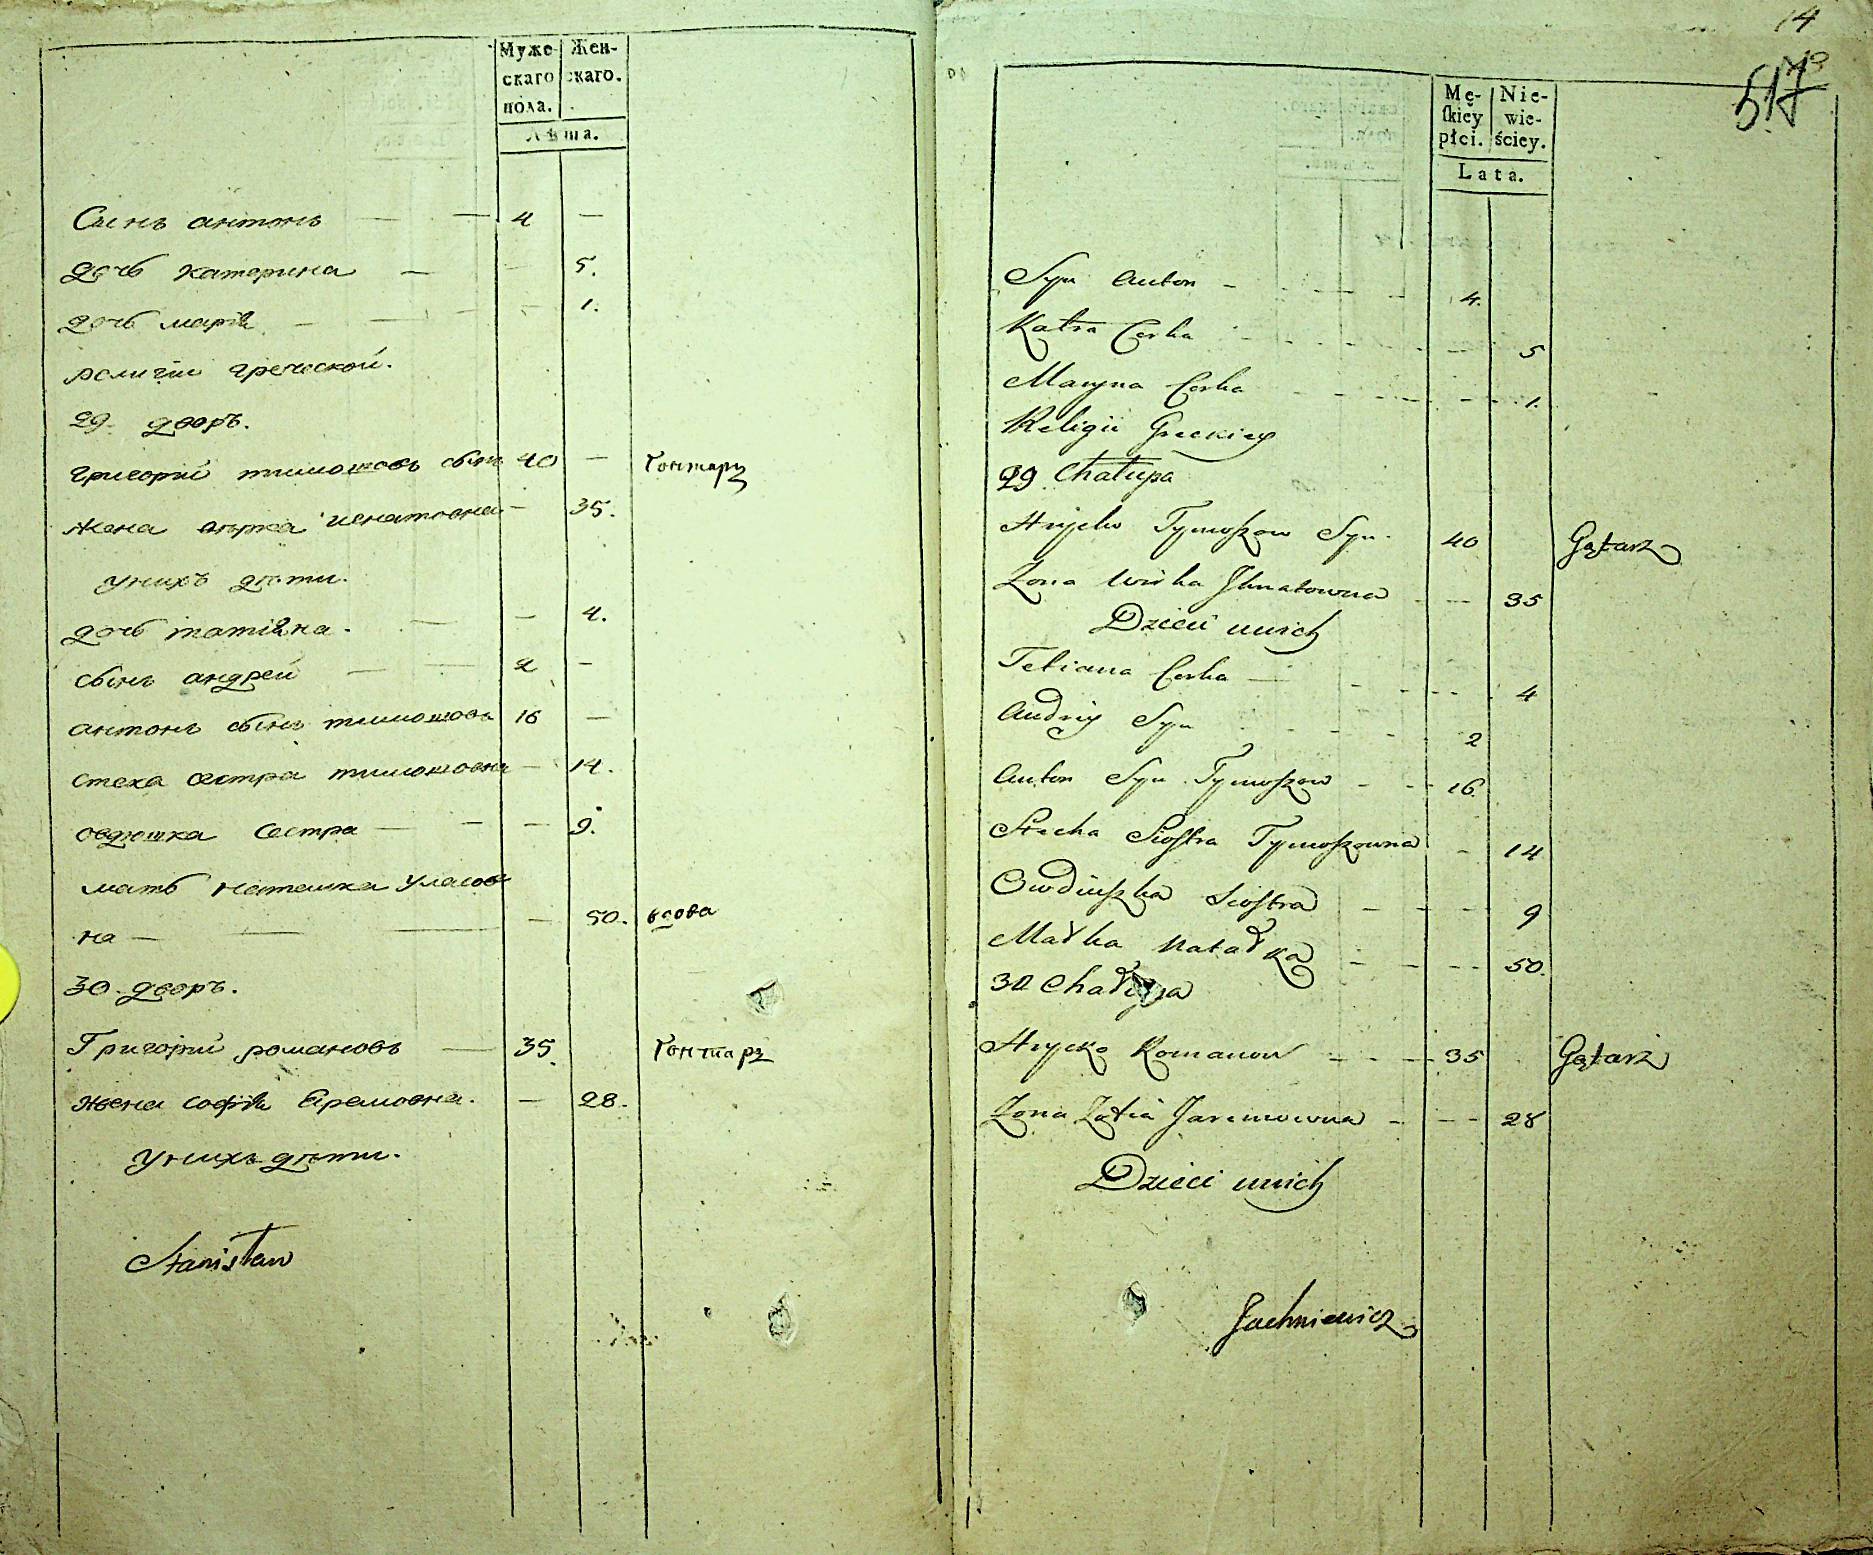 Муже- Жен-
скаго скаго.
пола.
Лѣта.
Сынъ антонъ — — 4 —
дочь катерина — - 5.
дочь марія — — - 1.
религіи греческой.
29. дворъ.
григорій тимошовъ сынъ 40 — Гонтарз
жена вѣрка игнатовна — 35.
унихъ дѣти.
дочь татіяна. — - 4.
сынъ андрей — — 2 —
антонъ сынъ тимошовъ 16 —
стеха сестра тимошовна — 14.
овдюшка сестра — — — 9.
мать наташка уласов
на — — — — 50. вдова
30. дворъ.
Григорій романовъ — 35. Гонтарз
жена софія Еремовна. — 28.
унихъ дѣти.
Stanisław
14
517
Mę- Nie-
skiey wie-
płci. ściey.
Lata.
Syn Anton - - - - 4.
Katra Corka - - - - 5
Maryna Corka - - - - 1.
Religii Greckiey
29. Chałupa
Hryćko Tymoszow Syn. 40 Gątarz
Zona Wirka Ihnatowna - - 35
Dzieci unich
Tetiana Corka — - - - 4
Andriy Syn - - - - 2
Anton Syn Tymoszow - - 16.
Stecha Siostra Tymoszowna - 14
Owdiuszka Siostra - - - 9
Matka Natałka - - - 50.
30 Chałupa
Hrycko Romanow - - - 35 Gątarz
Zona Zofia Jaremowna - - - 28
Dzieci unich
Jachniewicz